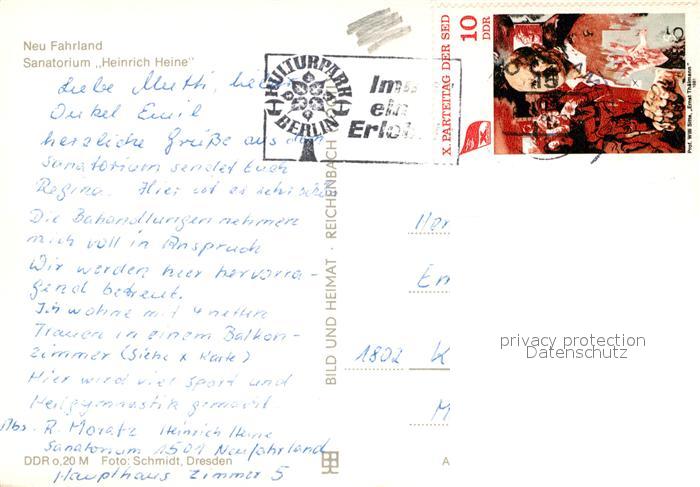 Neu Fahrland
Sanatorium „Heinrich Heine"
Liebe Mutti, lieber
Onkel Emil
herzliche Grüße aus dem
Sanatorium sendet Euch
Regina. Hier ist es sehr schön
Die Behandlungen nehmen
mich voll in Anspruch
Wir werden hier hervorra-
gend betreut.
Ich wohne mit 4 netten
Frauen in einem Balkon-
zimmer (Siehe x Karte)
Hier wird viel Sport und
Heilgymnastik gemacht
Abs. R. Moratz Heinrich Heine
Sanatorium 1501 Neufahrland
Haupthaus Zimmer 5
DDR 0,20 M Foto: Schmidt, Dresden
BILD UND HEIMAT · REICHENBACH
KULTURPARK
BERLIN
Imm
ein
Erleb
X. PARTEITAG DER SED
10
DDR
Prof. Willi Sitte, „Ernst Thälmann"
1981
Her
Em
1802 K
M
A
privacy protection
Datenschutz